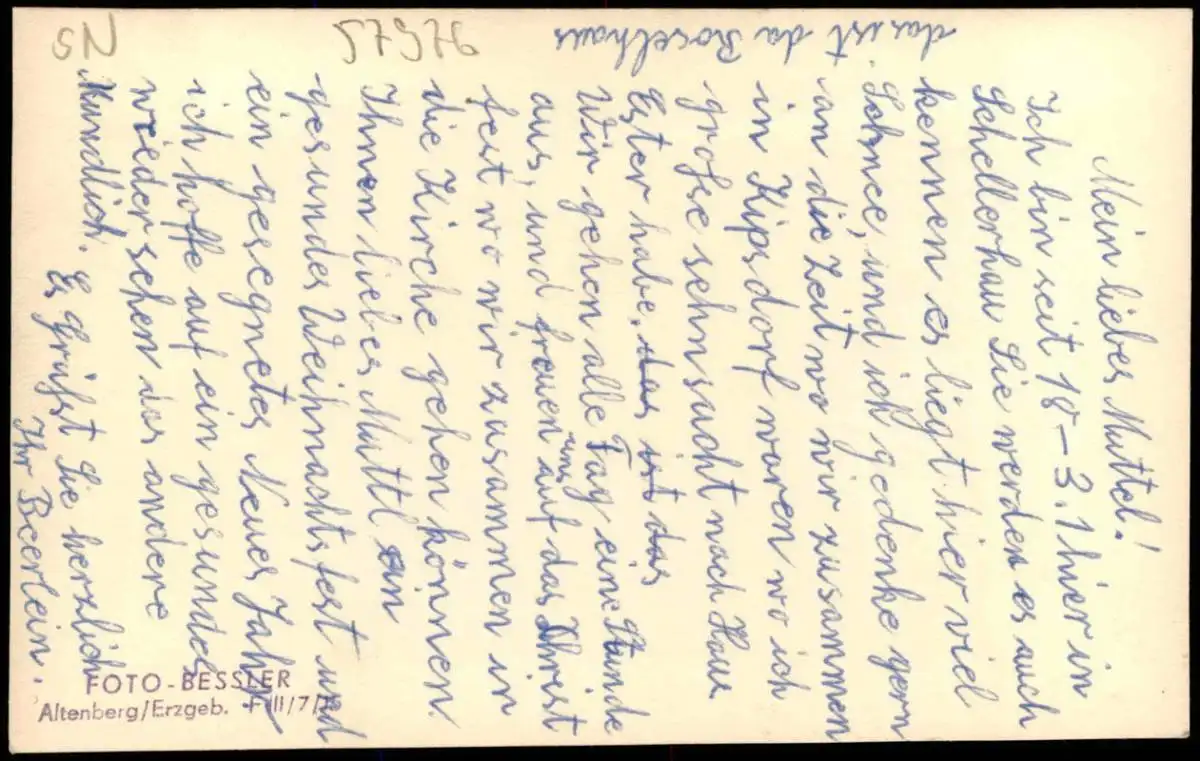 Mein liebes Muttel!
Ich bin seit 18-3.1 hier in
Schellerhau Sie werden es auch
kennen es liegt hier viel
Schnee, und ich gedenke gern
an die Zeit wo wir zusammen
in Kipsdorf waren wo ich
große sehnsucht nach Haus
Ester habe, das ist das
Wir gehen alle Tag eine Stunde
aus, und freuen uns auf das Christ
fest wo wir zusammen in
die Kirche gehen können.
Ihnen liebes Muttl ein
gesundes Weihnachtsfest und
ein gesegnetes Neues Jahr
ich hoffe auf ein gesundes
wiedersehen das andere
Mundlich. Es Grüßt Sie herzlich
Ihr Beerlein.
das ist da Roselhaus
57976
SN
FOTO-BESSLER
Altenberg/Erzgeb.